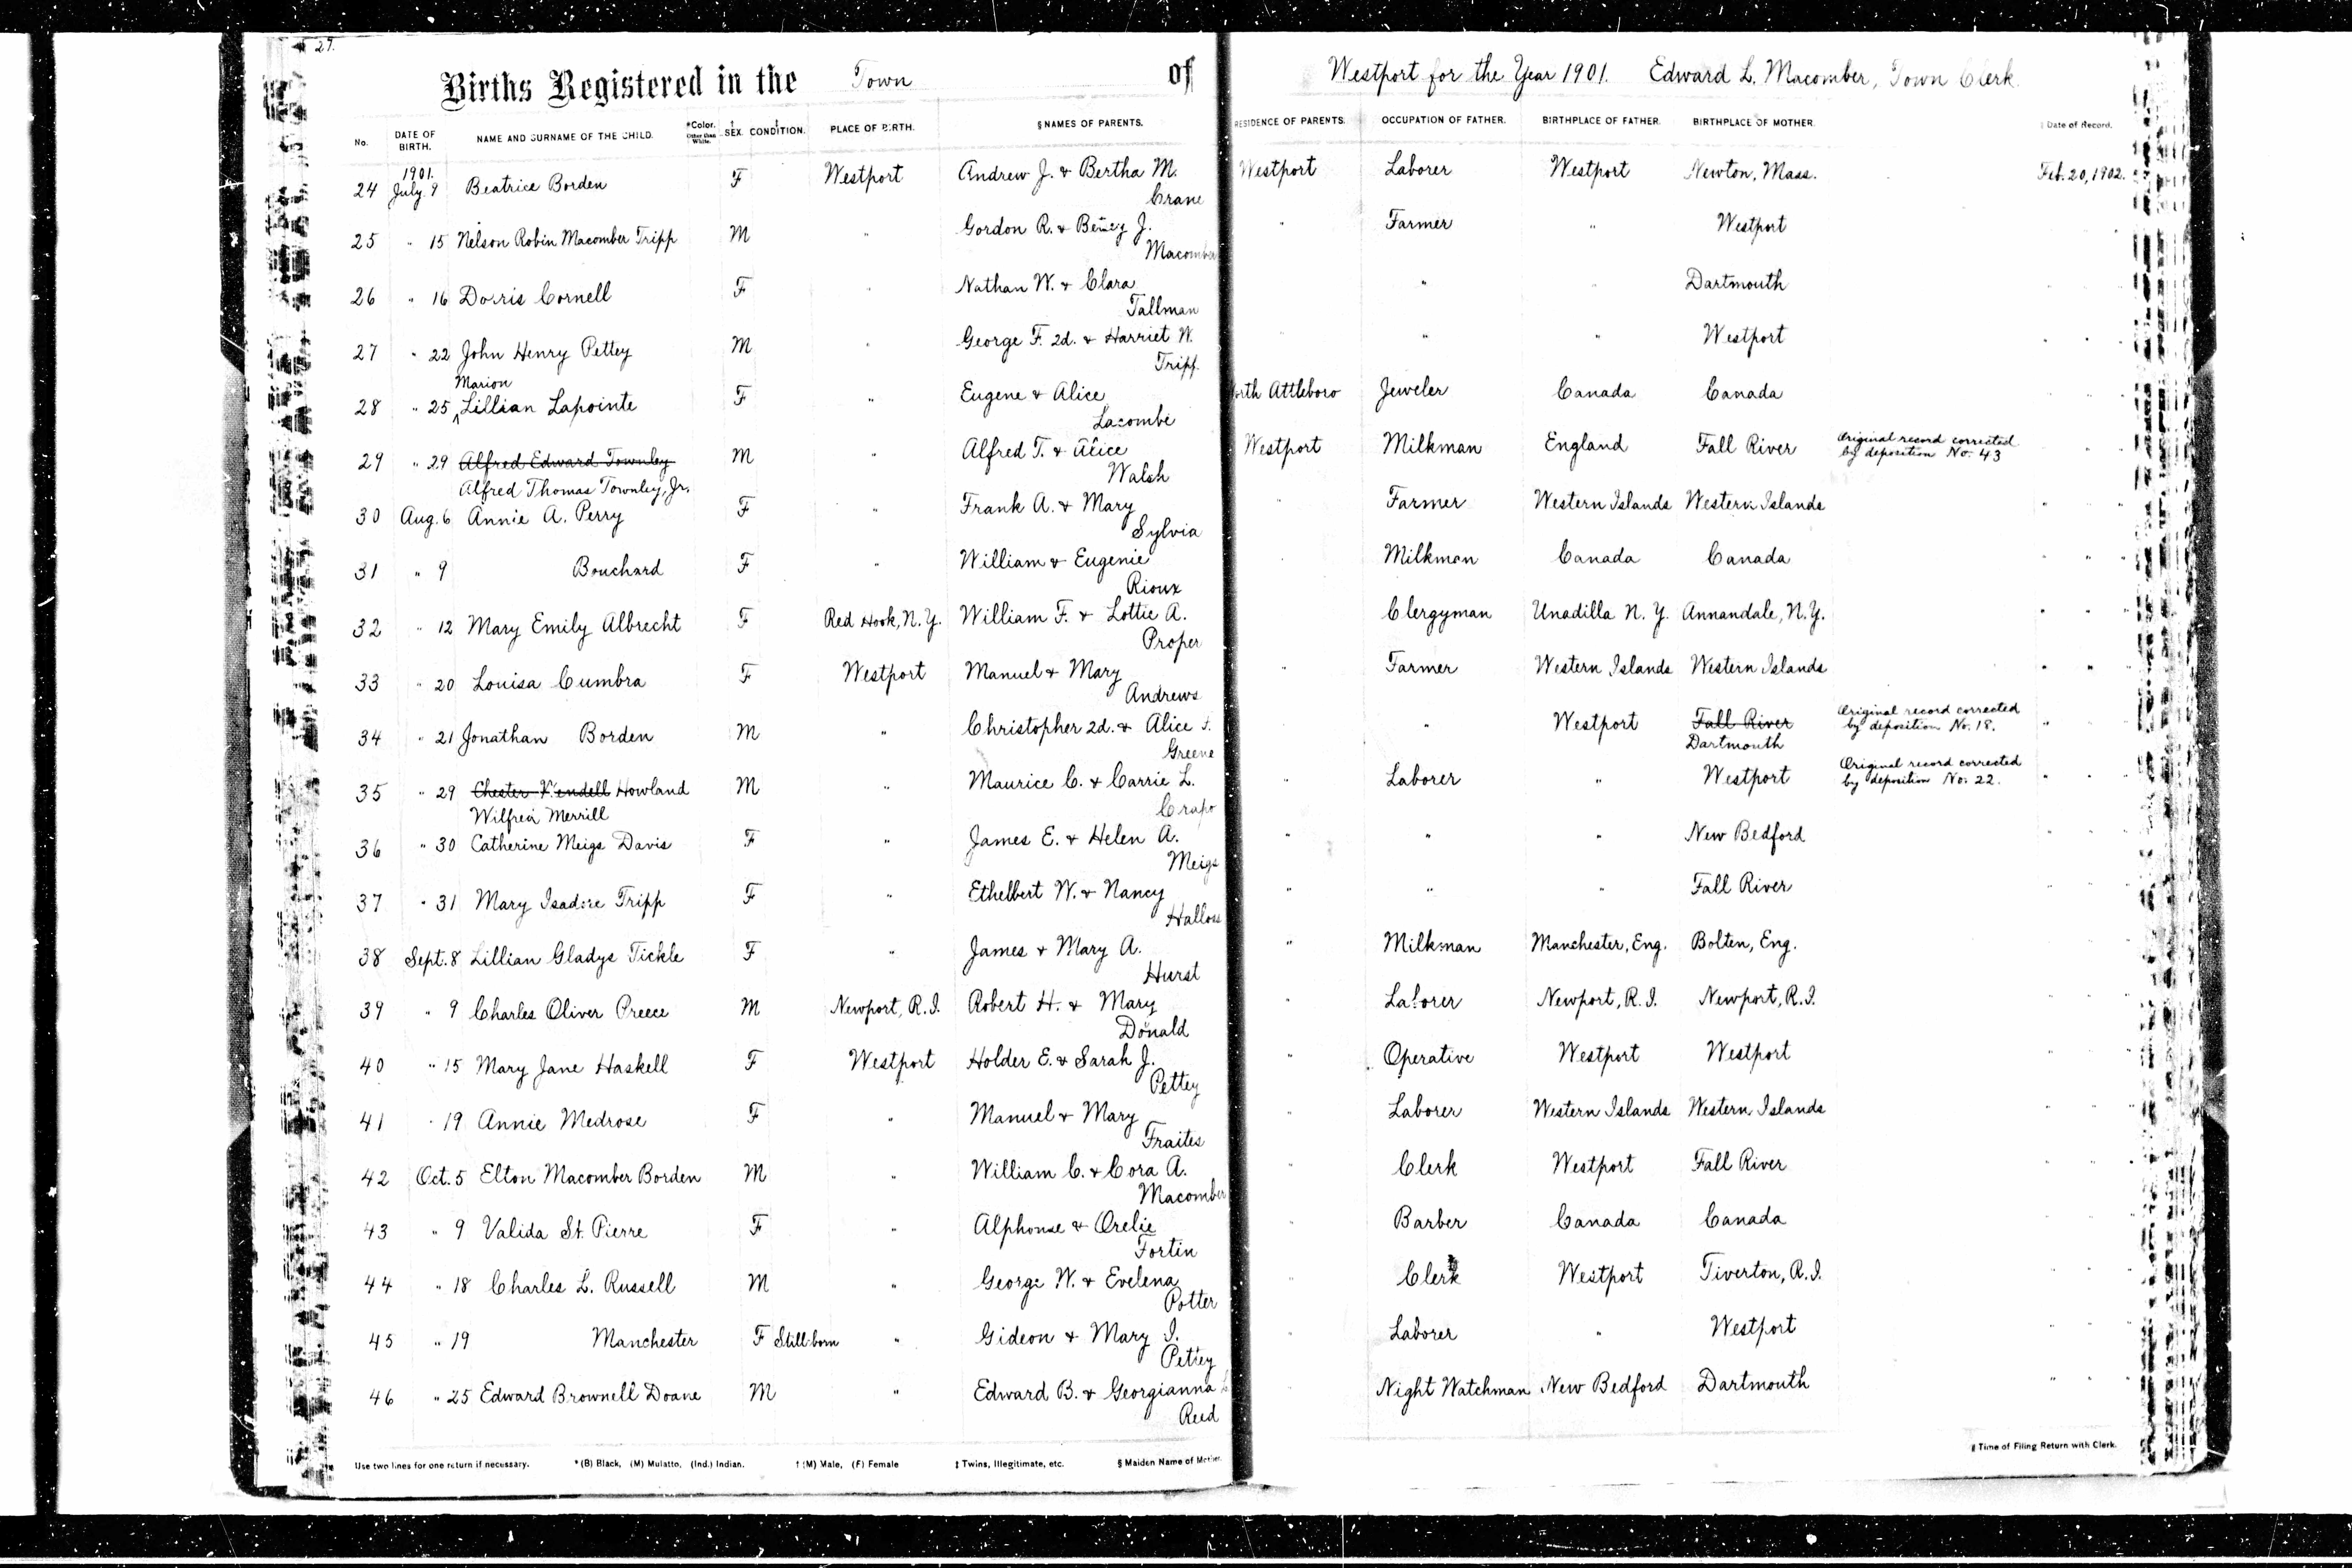 27.
Births Registered in the Town of Westport for the Year 1901. Edward L. Macomber, Town Clerk.
No. DATE OF BIRTH. NAME AND SURNAME OF THE CHILD. *Color. Other than White. †SEX. ‡CONDITION. PLACE OF BIRTH. §NAMES OF PARENTS. RESIDENCE OF PARENTS. OCCUPATION OF FATHER. BIRTHPLACE OF FATHER. BIRTHPLACE OF MOTHER. ‖Date of Record.
1901.
24 July 9 Beatrice Borden F Westport Andrew J. & Bertha M. Westport Laborer Westport Newton, Mass. Feb. 20, 1902.
Crane
25 " 15 Nelson Robin Macomber Tripp M " Gordon R. & J. " Farmer " Westport " " "
Macomber
26 " 16 Dorris Cornell F " Nathan W. & Clara " " " Dartmouth " " "
Tallman
27 " 22 John Henry Pettey M " George F. 2d. & Harriet W. " " " Westport " " "
Tripp
Marion
28 " 25 ‸Lillian Lapointe F " Eugene & Alice North Attleboro Jeweler Canada Canada " " "
Lacombe
29 " 29 Alfred Edward Townley M " Alfred T. & Alice Westport Milkman England Fall River Original record corrected by deposition No. 43 " " "
Alfred Thomas Townley, Jr. Walsh
30 Aug. 6 Annie A. Perry F " Frank A. & Mary " Farmer Western Islands Western Islands " " "
Sylvia
31 " 9 Bouchard F " William & Eugenie " Milkman Canada Canada " " "
Rioux
32 " 12 Mary Emily Albrecht F Red Hook, N.Y. William F. & Lottie A. " Clergyman Unadilla N.Y. Annandale, N.Y. " " "
Proper
33 " 20 Louisa Cumbra F Westport Manuel & Mary " Farmer Western Islands Western Islands " " "
Andrews
34 " 21 Jonathan Borden M " Christopher 2d. & Alice " " Westport Fall River Original record corrected by deposition No. 18. " " "
Greene Dartmouth
35 " 29 Chester Wendell Howland M " Maurice C. & Carrie L. " Laborer " Westport Original record corrected by deposition No. 22. " " "
Wilfred Merrill Crapo
36 " 30 Catherine Meigs Davis F " James E. & Helen A. " " " New Bedford " " "
Meigs
37 " 31 Mary Isadore Tripp F " Ethelbert W. & Nancy " " " Fall River " " "
38 Sept. 8 Lillian Gladys Tickle F " James & Mary A. " Milkman Manchester, Eng. Bolten, Eng. " " "
Hurst
39 " 9 Charles Oliver Preece M Newport, R.I. Robert H. & Mary " Laborer Newport, R.I. Newport, R.I. " " "
Donald
40 " 15 Mary Jane Haskell F Westport Holder E. & Sarah J. " Operative Westport Westport " " "
Pettey
41 " 19 Annie Medrose F " Manuel & Mary " Laborer Western Islands Western Islands " " "
Fraites
42 Oct. 5 Elton Macomber Borden M " William C. & Cora A. " Clerk Westport Fall River " " "
Macomber
43 " 9 Valida St. Pierre F " Alphonse & Orelie " Barber Canada Canada " " "
Fortin
44 " 18 Charles L. Russell M " George W. & Evelena " Clerk Westport Tiverton, R.I. " " "
Potter
45 " 19 Manchester F Still-born " Gideon & Mary J. " Laborer " Westport " " "
Pettey
46 " 25 Edward Brownell Doane M " Edward B. & Georgianna " Night Watchman New Bedford Dartmouth " " "
Reed
‖ Time of Filing Return with Clerk.
Use two lines for one return if necessary. *(B) Black, (M) Mulatto, (Ind.) Indian. †(M) Male, (F) Female ‡ Twins, Illegitimate, etc. § Maiden Name of Mother.